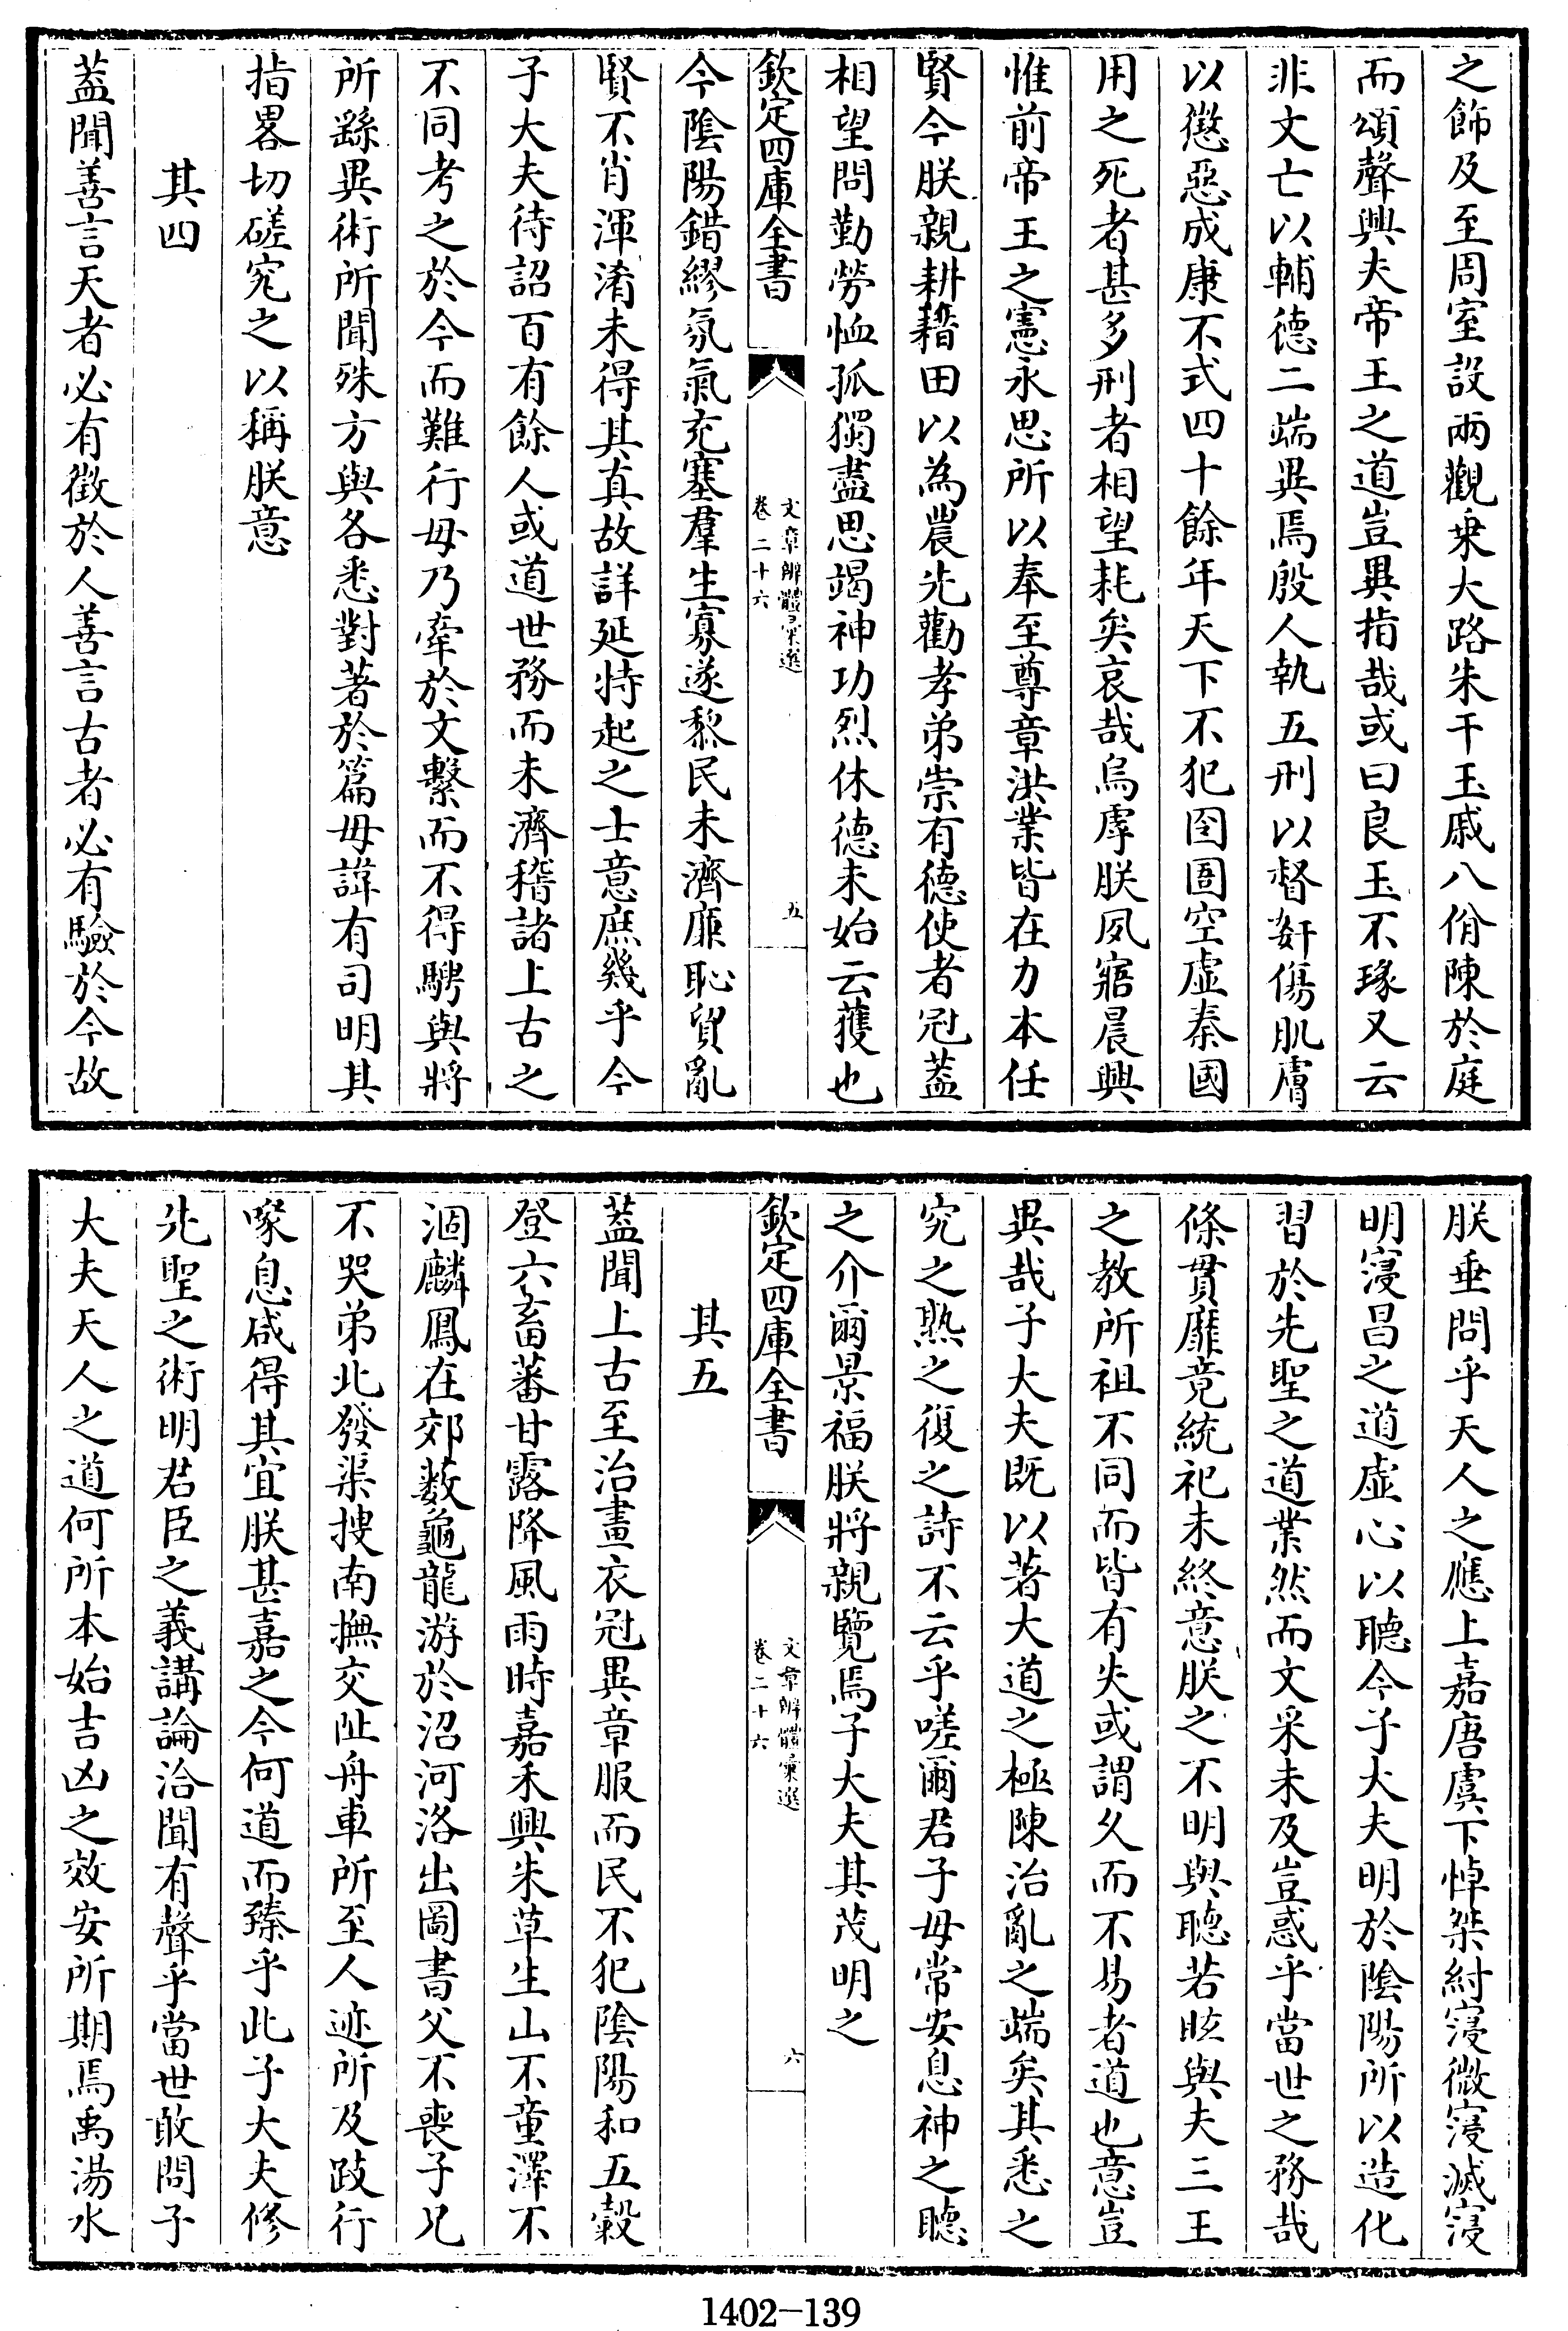 之飾及至周室設兩觀乗大路朱干玉戚八佾陳於庭
而頌聲興夫帝王之道豈異指哉或曰良玉不瑑又云
非文亡以輔德二端異焉殷人執五刑以督姧傷肌膚
以懲惡成康不式四十餘年天下不犯囹圄空虛秦國
用之死者甚多刑者相望耗矣哀哉烏虖朕夙寤晨興
惟前帝王之憲永思所以奉至尊章洪業皆在力本任
賢今朕親耕籍田以為農先勸孝弟崇有德使者冠葢
相望問勤勞恤孤獨盡思竭神功烈休德未始云獲也
欽定四庫全書
文章辨體彙選
卷二十六
五
今陰陽錯繆氛氣充塞羣生寡遂黎民未濟廉恥貿亂
賢不肖渾淆未得其真故詳延特起之士意庶幾乎今
子大夫待詔百有餘人或道世務而未濟稽諸上古之
不同考之於今而難行毋乃牽於文繫而不得騁與將
所繇異術所聞殊方與各悉對著於篇毋諱有司明其
指畧切磋究之以稱朕意
其四
葢聞善言天者必有徵於人善言古者必有驗於今故
朕垂問乎天人之應上嘉唐虞下悼桀紂寖微寖滅寖
明寖昌之道虛心以聽今子大夫明於陰陽所以造化
習於先聖之道業然而文采未及豈惑乎當世之務哉
條貫靡竟統祀未終意朕之不明與聽若眩與夫三王
之教所祖不同而皆有失或謂久而不易者道也意豈
異哉子大夫既以著大道之極陳治亂之端矣其悉之
究之熟之復之詩不云乎嗟爾君子毋常安息神之聽
之介爾景福朕將親覽焉子大夫其茂明之
欽定四庫全書
文章辨體彙選
卷二十六
六
其五
葢聞上古至治畫衣冠異章服而民不犯陰陽和五穀
登六畜蕃甘露降風雨時嘉禾興朱草生山不童澤不
涸麟鳳在郊藪龜龍游於沼河洛出圖書父不喪子兄
不哭弟北發渠搜南撫交阯舟車所至人迹所及跂行
喙息咸得其宜朕甚嘉之今何道而臻乎此子大夫修
先聖之術明君臣之義講論洽聞有聲乎當世敢問子
大夫天人之道何所本始吉凶之效安所期焉禹湯水
1402-139